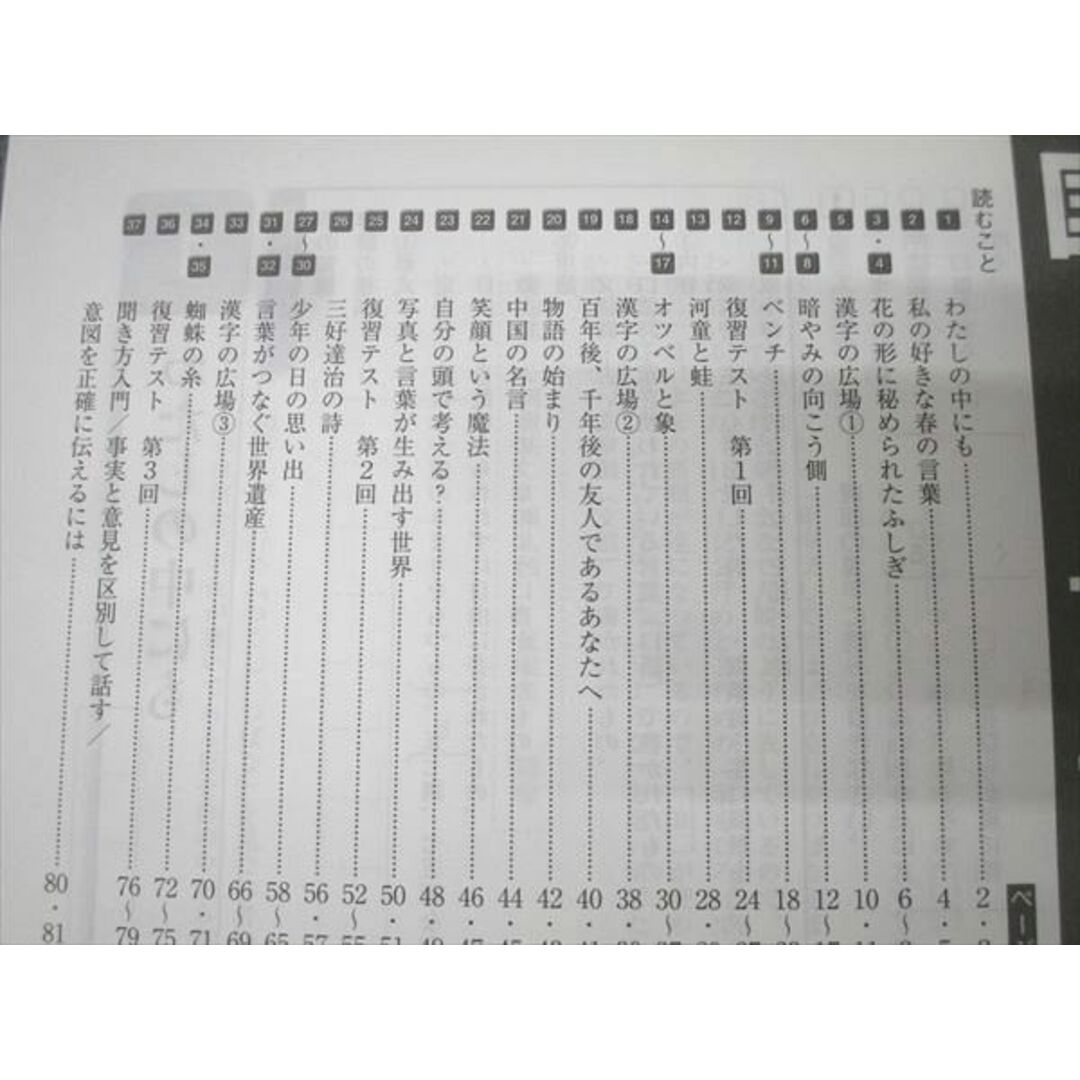 国
ページ
読むこと
1 わたしの中にも 2・
2 私の好きな春の言葉 4・5
3・4 花の形に秘められたふしぎ 6〜
5 漢字の広場① 10・11
6〜8 暗やみの向こう側 12〜17
9〜11 ベンチ 18〜23
12 復習テスト 第1回 24〜27
13 河童と蛙 28・29
14〜17 オツベルと象 30〜37
18 漢字の広場② 38・39
19 百年後、千年後の友人であるあなたへ 40・41
20 物語の始まり 42・43
21 中国の名言 44・45
22 笑顔という魔法 46・47
23 自分の頭で考える? 48・49
24 写真と言葉が生み出す世界 50・51
25 復習テスト 第2回 52〜55
26 三好達治の詩 56・57
27〜30 少年の日の思い出 58〜65
31・32 言葉がつなぐ世界遺産 66〜69
33 漢字の広場③ 70・71
34・35 蜘蛛の糸 72〜75
36 復習テスト 第3回 76〜79
37 聞き方入門／事実と意見を区別して話す／
意図を正確に伝えるには 80・81